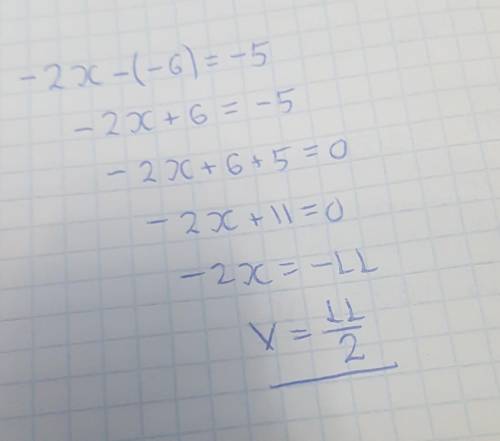 -2x-(-6)=-5
-2x+6=-5
-2x+6+5=0
-2x+11=0
-2x=-11
x=11/2